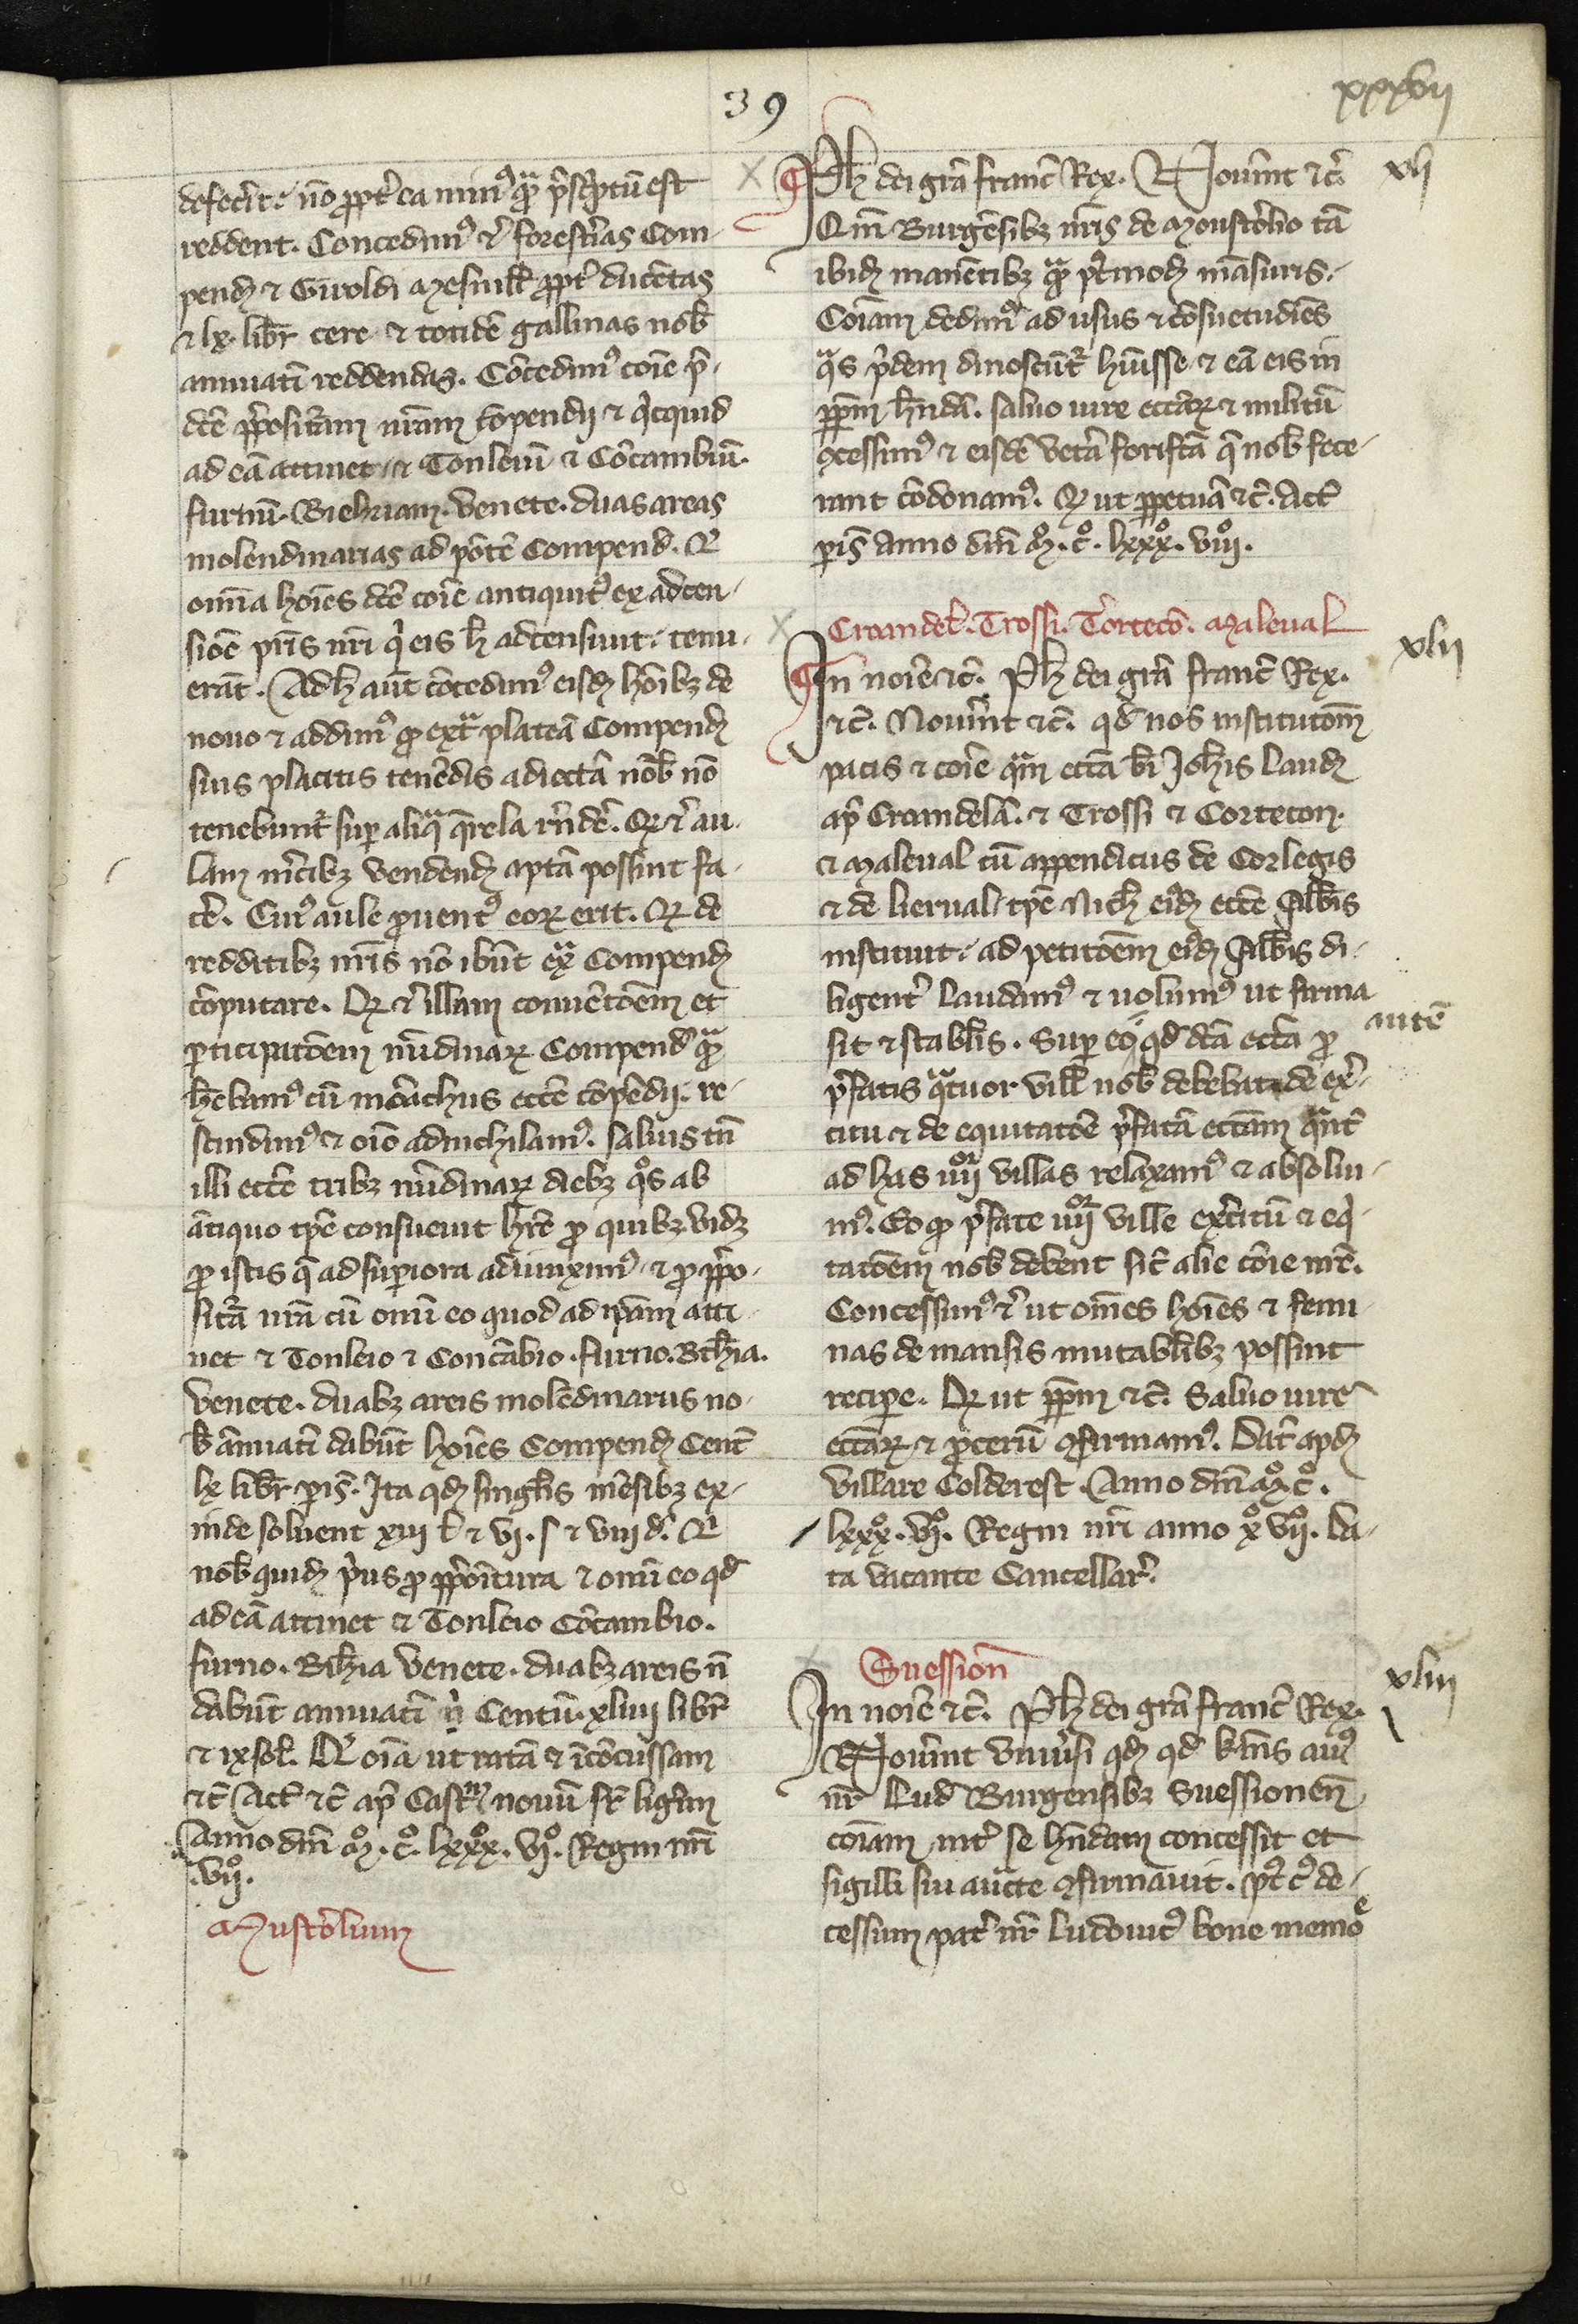 39
xxxvii
defec̄it. nō ꝓpt̄ ea min9 qͣ̄ p̄sc̄ptū est
reddent. Concedim9 ⁊ ē forest̄as Com-
pend̄ ⁊ Giroldi Mesnill̄ ꝓpt̄ ducētas
⁊ lx. libr̄ cere ⁊ totidē gallinas nob̄
annuatī reddendas. Cōcedim9 cōie p̄-
dc̄e p̄posit̄am nr̄am cōpendij ⁊ qͥcquid
ad eā attinet. ⁊ Tonleiū ⁊ Cōcambiū.
furnū. Biehriam. venete. duas areas
molendinarias ad pōtē Compend̄. Qͥ
om̄ia hoīes dc̄e cōie antiquit9 ex adcen-
siōe pr̄is nr̄i qͥ eis h̄ adcensiuit. tenu-
erāt. Ad h̄ aūt cōcedim9 eisd̄ hōibꝫ de
nouo ⁊ addim9 ꝙ extͣ plateā Compend̄
suis placitis tenēdis adiectā nob̄ nō
tenebunt̄ suꝑ aliqͣ qͣ̄rela rn̄dē. Qꝫ ⁊ ē au-
lam m̄cibꝫ vendend̄ aptā possint fa-
cē. Cui9 aule ꝓuent9 eoꝝ erit. Qꝫ de
redditibꝫ nr̄is nō ibūt exͣ Compend̄
cōputare. Qꝫ ⁊ ē illam conuētōem et
ꝑticipatōem nūdinaꝝ Compend̄ qͣ̄
hēbam9 cū monachis eccē cōpēdij. re-
scindim9 ⁊ oīo adnichilam9. saluis tn̄
illi eccē tribꝫ nūdinaꝝ diebꝫ qͦs ab
ātiquo tp̄e consueuit hr̄e ꝓ quibꝫ vidꝫ
ꝓ istis q̄ ad suꝑiora adiunxim9. ⁊ ꝓ p̄po-
sit̄a nr̄a cū om̄i eo quod ad ip̄am atti-
net ⁊ Tonleio ⁊ Concābio. furno. Bieh̄ia.
venete. duabꝫ areis molēdinariis no-
b̄ ānuatī dabūt hoīes Compend̄ Cent̄
lx libr̄ ꝑis̄. Ita qd̄ singl̄is mēsibꝫ ex-
inde soluent xiij l̄ ⁊ vi. s ⁊ viij d̄. Qͥ
nob̄ quid̄ p̄us ꝓ p̄poītura ⁊ om̄i eo qd̄
ad eā attinet ⁊ Tonleio Cōcambio.
furno. Bieh̄ia venete. duabꝫ areis n̄
dabūt annuatī n̄ Centū. xliiij libr̄
⁊ ix sol̄. Qͥ oīa ut ratā ⁊ īcōcussam
⁊c̄ Act̄ ⁊c̄ ap̄ Castr̄ nouū sr̄ ligerim
Anno dn̄i Mͦ. Cͦ. lxxxͦ. vjͦ. Regni nr̄i
.vijͦ.
Mustōlium
xli
Ph̄ dei grā franc̄ Rex. Nou̅int ⁊c̄.
Qm̄ Burgēsibꝫ nr̄is de Monstōlio tā
ibid̄ manētibꝫ qͣ̄ p̄tmod̄ māsuris.
Cōiam dedim9 ad usus ⁊ cōsuetudīes
qͣs p̄dem dinoscūt̄ hūisse. ⁊ eā eis in
ꝑpm̄ hn̄dā. saluo iure eccāꝝ ⁊ militū
ꝯcessim9 ⁊ eisdē vetā forifcā q̄ nob̄ fece-
rant cōdonam9. Qꝫ ut ꝑpetuā ⁊c̄. Act̄
ꝑis̄ Anno dn̄i Mͦ. Cͦ. lxxxͦ. viijͦ.
Craandel̄. Trossi. Cortecō. Maleual
xlii
In noīe ⁊c̄. Ph̄ dei grā franc̄ Rex.
⁊c̄. Nou̅int ⁊c̄. qd̄ nos institutōem
pacis ⁊ cōie qͣm eccā bī Joh̄is Laud̄
ap̄ Craandelā. ⁊ Trossi ⁊ Cortecon.
⁊ Maleual cū appendiciis de Corlegis
⁊ de lierual. tp̄e Nich̄ ei9d̄ eccē Abb̄is
instituit. ad petitōem ei9d̄ Abb̄is di-
ligent̄ laudam9 ⁊ uolum9 ut firma
sit ⁊ stabl̄is. Suꝑ eo qd̄ dc̄a eccā ꝓ
autē
p̄fatis qͣtuor vill̄ nob̄ debebat de ex̄-
citu ⁊ de equitatōe p̄fatā eccām qͣnt̄
ad has iiijͦʳ villas relaxam9 ⁊ absolui-
m9. Eo ꝙ p̄fate iiijͦʳ ville ex̄citū ⁊ eqͥ-
tatōem nob̄ debent sic̄ alie cōie nr̄e.
Concessim9 ⁊ ē ut om̄es hoīes ⁊ femi-
nas de mansis mutabl̄ibꝫ possint
reciꝑe. Qꝫ ut ꝑpm̄ ⁊c̄. Saluo iure
eccāꝝ ⁊ ꝓcerū ꝯfirmam9. Dat̄ apd̄
Villare Colderest. Anno dn̄i Mͦ. Cͦ.
lxxxͦ. vjͦ. Regni nr̄i anno xͦ vijͦ. Da-
ta vacante Cancellar̄.
Suession̄
xliii
In noīe ⁊c̄. Ph̄ dei grā franc̄ Rex.
Nou̅int vniu̅si qd̄ qd̄ kīmͥs au9
nr̄ Lud̄ Burgensibꝫ Suessionen̄
cōiam int̄ se hn̄dam concessit et
sigilli sui aucte ꝯfirmauit. p9t c9 de-
cessum pat̄ nr̄ Ludouic9 bone memoͤ